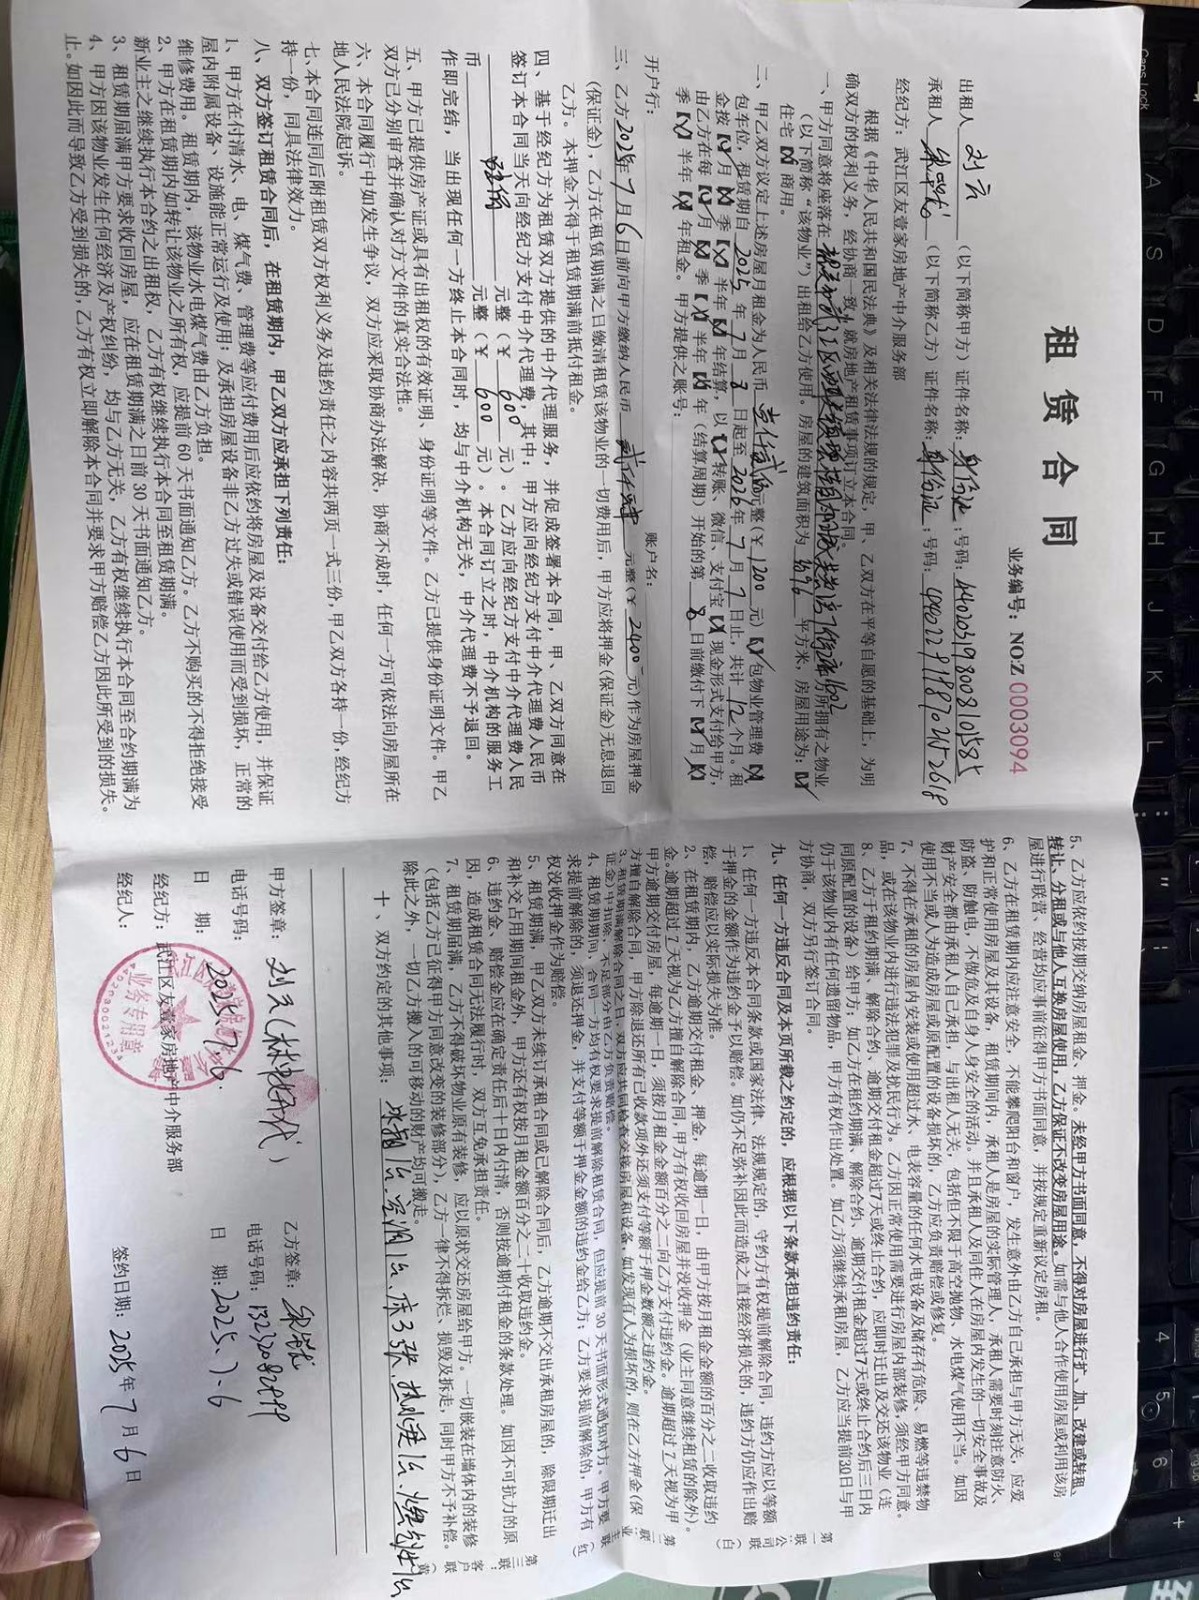 租赁合同
业务编号：NO:Z 0003094
出租人 刘云 （以下简称甲方）证件名称：身份证 ：号码：
承租人 （以下简称乙方）证件名称：身份证 ：号码：
经纪方：武江区友壹家房地产中介服务部
根据《中华人民共和国民法典》及相关法律法规的规定，甲、乙双方在平等自愿的基础上，为明
确双方的权利义务，经协商一致，就房地产租赁事项订立本合同。
一、甲方同意将座落在 房所拥有之物业
（以下简称“该物业”）出租给乙方使用。房屋的建筑面积为 平方米，房屋用途为：【√】
住宅【×】商用。
二、甲乙双方议定上述房屋月租金为人民币 壹仟贰佰 元整（￥1200 元）【√】包物业管理费【×】
包车位，租赁期自 2025 年 7 月 8 日起至 2026 年 7 月 7 日止，共计 12 个月。租
金按【√】月【×】季【×】半年【×】年结算，以【√】转账、微信、支付宝【×】现金形式支付给甲方，
由乙方在每【√】月【×】季【×】半年【×】年（结算周期）开始的第 8 日前缴付下【×】月【×】
季【×】半年【×】年租金。甲方提供之账号：
开户行： 账户名：
三、乙方 2025 年 7 月 6 日前向甲方缴纳人民币 元整（￥2400 元）作为房屋押金
（保证金），乙方在租赁期满之日缴清租赁该物业的一切费用后，甲方应将押金（保证金）无息退回
乙方。本押金不得于租赁期满前抵付租金。
四、基于经纪方为租赁双方提供的中介代理服务，并促成签署本合同，甲、乙双方同意在
签订本合同当天向经纪方支付中介代理费，其中：甲方应向经纪方支付中介代理费人民币
元整（￥600 元）。乙方应向经纪方支付中介代理费人民
币 元整（￥600 元）。本合同订立之时，中介机构的服务工
作即完结，当出现任何一方终止本合同时，均与中介机构无关，中介代理费不予退回。
五、甲方已提供房产证或具有出租权的有效证明、身份证明等文件。乙方已提供身份证明文件。甲乙
双方已分别审查并确认对方文件的真实合法性。
六、本合同履行中如发生争议，双方应采取协商办法解决，协商不成时，任何一方可依法向房屋所在
地人民法院起诉。
七、本合同连同后附租赁双方权利义务及违约责任之内容共两页一式三份，甲乙双方各持一份，经纪方
持一份，同具法律效力。
八、双方签订租赁合同后，在租赁期内，甲乙双方应承担下列责任：
1、甲方在付清水、电、煤气费、管理费等应付费用后应依约将房屋及设备交付给乙方使用，并保证
屋内附属设备、设施能正常运行及使用；及承担房屋设备非乙方过失或错误使用而受到损坏，正常的
维修费用。租赁期内，该物业水电煤气费由乙方负担。
2、甲方在租赁期内如转让该物业之所有权，应提前 60 天书面通知乙方。乙方不购买的不得拒绝接受
新业主之继续执行本合约之出租权，乙方有权继续执行本合同至租赁期满。
3、租赁期届满甲方要求收回房屋，应在租赁期满之日前 30 天书面通知乙方。
4、甲方因该物业发生任何经济及产权纠纷，均与乙方无关，乙方有权继续执行本合同至合约期满为
止。如因此而导致乙方受到损失的，乙方有权立即解除本合同并要求甲方赔偿乙方因此所受到的损失。
5、乙方应依约按期交纳房屋租金、押金。未经甲方书面同意，不得对房屋进行扩、加、改建或转租、
转让、分租或与他人互换房屋使用，乙方保证不改变房屋用途。如需与他人合作使用房屋或利用该房
屋进行联营、经营均应事前征得甲方书面同意，并按规定重新议定房租。
6、乙方在租赁期内应注意安全，不能攀爬阳台和窗户，发生意外由乙方自己承担与甲方无关，应爱
护和正常使用房屋及其设备，租赁期间内，承租人是房屋的实际管理人，承租人需要时刻注意防火、
防盗、防触电，不做危及自身人身安全的活动。并且承租人及同住人在房屋内发生的一切安全事故及
财产安全都由承租人自己承担，与出租人无关，包括但不限于高空抛物、水电煤气使用不当。如因
使用不当或人为造成房屋或原配置的设备损坏的，乙方应负责赔偿或修复。
7、不得在承租的房屋内安装或使用超过水、电表容量的任何水电设备及储存有危险、易燃等违禁物
品，或在该物业内进行违法犯罪及扰民行为。乙方因正常使用需要进行房屋内部装修，须经甲方同意。
8、乙方于租约期满、解除合约、逾期交付租金超过7天或终止合约，应即时迁出及交还该物业（连
同原配置的设备）给甲方；如乙方在租约期满、解除合约、逾期交付租金超过7天或终止合约后三日内
仍于该物业内有任何遗留物品，甲方有权作出处置。如乙方须继续承租房屋，乙方应当提前30日与甲
方协商，双方另行签订合同。
九、任何一方违反合同及本页所载之约定的，应根据以下条款承担违约责任：
1、任何一方违反本合同条款或国家法律、法规规定的，守约方有权提前解除合同，违约方应以等额
于押金的金额作为违约金予以赔偿。如仍不足弥补因此而造成之直接经济损失的，违约方仍应作出赔
偿，赔偿应以实际损失为准。
2、在租赁期内，乙方逾期交付租金、押金，每逾期一日，由甲方按月租金金额的百分之二收取违约
金。逾期超过7天视为乙方擅自解除合同，甲方有权收回房屋并没收押金（业主同意继续租赁的除外）。
甲方逾期交付房屋，每逾期一日，须按月租金金额百分之二向乙方支付违约金。逾期超过7天视为甲
方擅自解除合同，甲方除退还所有已收款项外还须支付等额于押金数额之违约金。
3、租赁期满解除合同之日，双方应共同检查交接房屋和设备，如发现有人为损坏的，则在乙方押金（保
证金）中扣除，不足部分由乙方负责赔偿。
4、租赁期期间，合同一方均有权要求提前解除租赁合同，但应提前 30 天书面形式通知对方。甲方要
求提前解除的，须退还押金，并支付等额于押金金额的违约金给乙方；乙方要求提前解除的，甲方有
权没收押金作为赔偿。
5、租赁期满，甲乙双方未续订承租合同或已解除合同后，乙方逾期不交出承租房屋的，除限期迁出
和补交占用期间租金外，甲方还有权按月租金额百分之二十收取违约金。
6、违约金、赔偿金应在确定责任后十日内付清，否则按逾期付租金的条款处理。如因不可抗力的原
因，造成租赁合同无法履行时，双方互免承担责任。
7、租赁期届满，乙方不得破坏物业原有装修，应以原状交还房屋给甲方。一切嵌装在墙体内的装修
（包括乙方已征得甲方同意改变的装修部分），乙方一律不得拆烂、损毁及拆走，同时甲方不予补偿。
除此之外，一切乙方搬入的可移动的财产均可搬走。
十、双方约定的其他事项：冰箱1台、空调1台、床3张、热水器1台、燃气灶1台
甲方签章：刘云（ 代）
电话号码：
日 期：2025.7.6
经纪方：武江区友壹家房地产中介服务部
经纪人：
业务专用章
乙方签章：
电话号码：
日 期：2025.7.6
签约日期：2025年 7 月 6 日